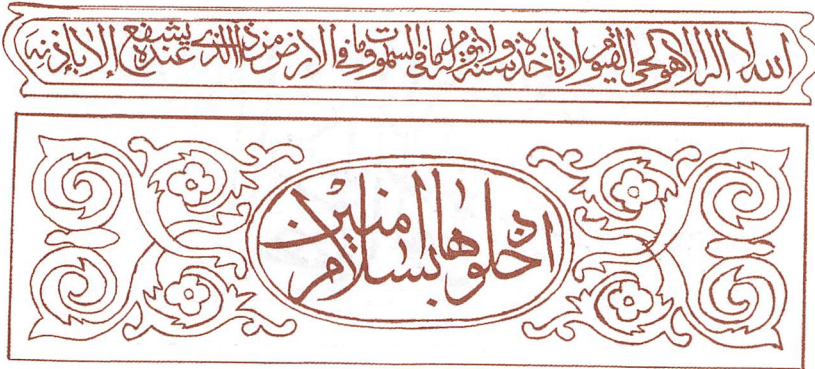 الله لا اله الا هو الحي القيوم لا تاخذه سنة ولا نوم له ما في السموات وما في الارض من ذا الذي يشفع عنده إلا بإذنه
ادخلوها بسلام امنين